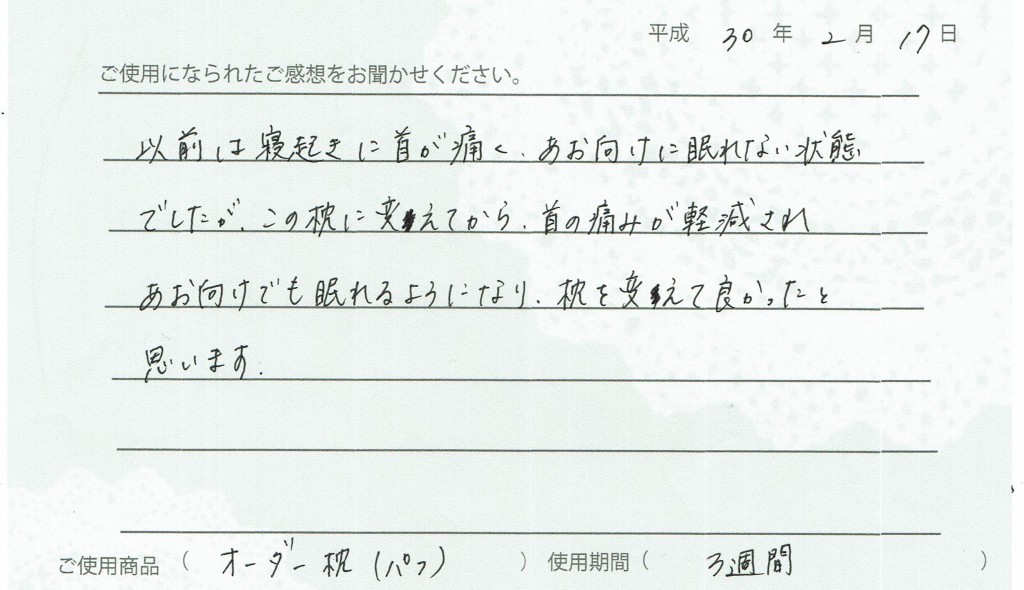 平成 30 年 2 月 17 日
ご使用になられたご感想をお聞かせください。
以前は寝起きに首が痛く、あお向けに眠れない状態
でしたが、この枕に変えてから、首の痛みが軽減され
あお向けでも眠れるようになり、枕を変えて良かったと
思います。
ご使用商品 ( オーダー枕 (パフ) ) 使用期間 ( 3週間 )